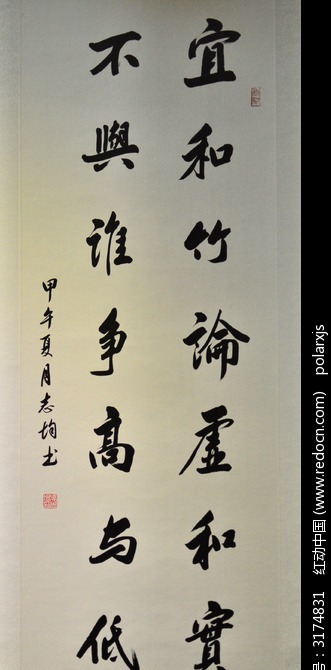 宜和竹論虛和實
不與誰爭高与低
甲午夏月志均书
号：3174831 红动中国 (www.redocn.com) polarxjs